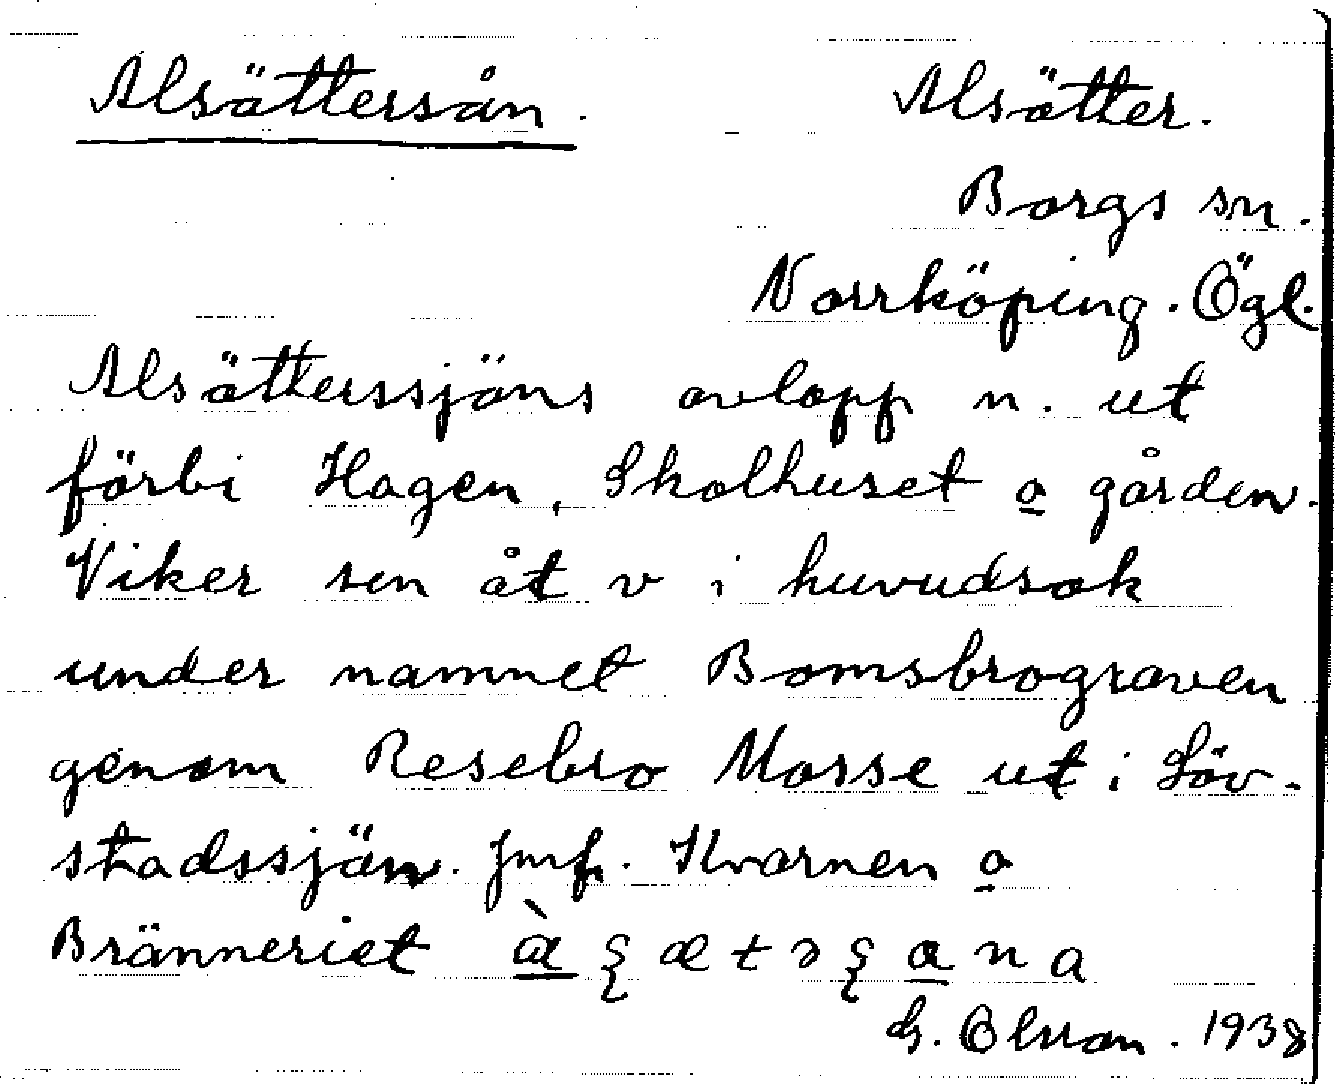 Alsättersån. Alsätter.
Borgs sn.
Norrköping. Ögl.
Alsätterssjöns avlopp n. ut
förbi Hagen, Skolhuset o gården.
Viker sen åt v i huvudsak
under namnet Bomsbrograven
genom Resebro Mosse ut i Löv-
stadssjön. Jmf. Kvarnen o
Bränneriet
G. Olsson. 1938